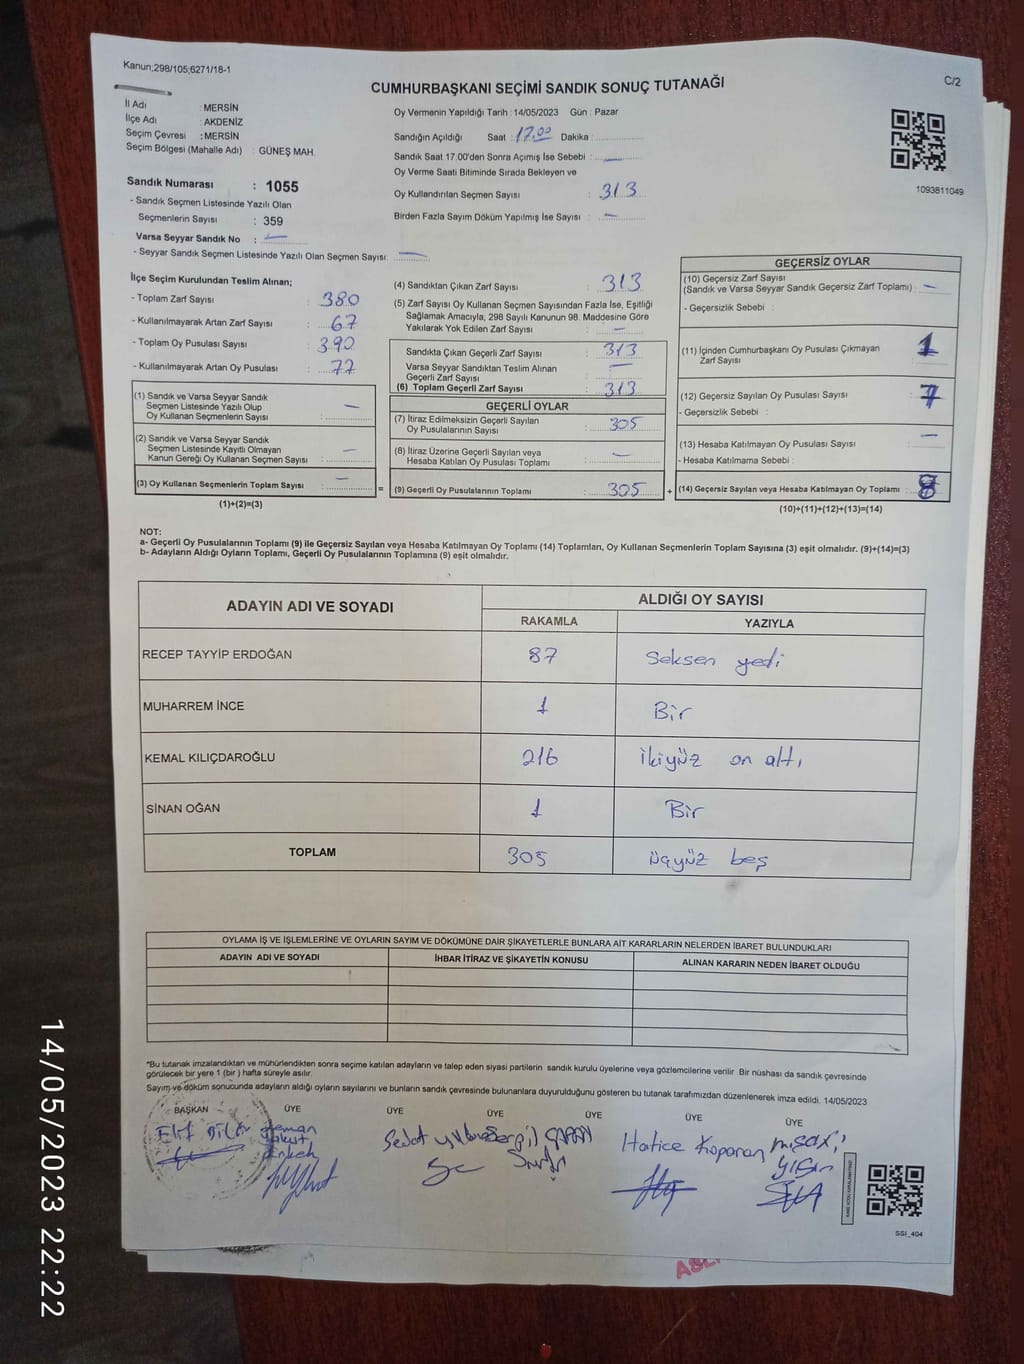 Kanun;298/105;6271/18-1
C/2
CUMHURBAŞKANI SEÇİMİ SANDIK SONUÇ TUTANAĞI
İl Adı : MERSİN
İlçe Adı : AKDENİZ
Seçim Çevresi : MERSİN
Seçim Bölgesi (Mahalle Adı) : GÜNEŞ MAH.
Oy Vermenin Yapıldığı Tarih : 14/05/2023 Gün : Pazar
Sandığın Açıldığı Saat : 17.00 Dakika :
Sandık Saat 17.00'den Sonra Açımış İse Sebebi : —
Oy Verme Saati Bitiminde Sırada Bekleyen ve
Oy Kullandırılan Seçmen Sayısı : 313
Birden Fazla Sayım Döküm Yapılmış İse Sayısı : —
1093811049
Sandık Numarası : 1055
- Sandık Seçmen Listesinde Yazılı Olan
Seçmenlerin Sayısı : 359
Varsa Seyyar Sandık No : —
- Seyyar Sandık Seçmen Listesinde Yazılı Olan Seçmen Sayısı: —
İlçe Seçim Kurulundan Teslim Alınan;
- Toplam Zarf Sayısı : 380
- Kullanılmayarak Artan Zarf Sayısı : 67
- Toplam Oy Pusulası Sayısı : 390
- Kullanılmayarak Artan Oy Pusulası : 77
(1) Sandık ve Varsa Seyyar Sandık
Seçmen Listesinde Yazılı Olup
Oy Kullanan Seçmenlerin Sayısı : —
(2) Sandık ve Varsa Seyyar Sandık
Seçmen Listesinde Kayıtlı Olmayan
Kanun Gereği Oy Kullanan Seçmen Sayısı : —
(3) Oy Kullanan Seçmenlerin Toplam Sayısı : —
(1)+(2)=(3)
=
(4) Sandıktan Çıkan Zarf Sayısı : 313
(5) Zarf Sayısı Oy Kullanan Seçmen Sayısından Fazla İse, Eşitliği
Sağlamak Amacıyla, 298 Sayılı Kanunun 98. Maddesine Göre
Yakılarak Yok Edilen Zarf Sayısı : —
Sandıkta Çıkan Geçerli Zarf Sayısı : 313
Varsa Seyyar Sandıktan Teslim Alınan
Geçerli Zarf Sayısı : —
(6) Toplam Geçerli Zarf Sayısı : 313
GEÇERLİ OYLAR
(7) İtiraz Edilmeksizin Geçerli Sayılan
Oy Pusulalarının Sayısı : 305
(8) İtiraz Üzerine Geçerli Sayılan veya
Hesaba Katılan Oy Pusulası Toplamı : —
(9) Geçerli Oy Pusulalarının Toplamı : 305
+
GEÇERSİZ OYLAR
(10) Geçersiz Zarf Sayısı
(Sandık ve Varsa Seyyar Sandık Geçersiz Zarf Toplamı) : —
- Geçersizlik Sebebi :
(11) İçinden Cumhurbaşkanı Oy Pusulası Çıkmayan
Zarf Sayısı : 1
(12) Geçersiz Sayılan Oy Pusulası Sayısı : 7
- Geçersizlik Sebebi :
(13) Hesaba Katılmayan Oy Pusulası Sayısı : —
- Hesaba Katılmama Sebebi :
(14) Geçersiz Sayılan veya Hesaba Katılmayan Oy Toplamı : 8
(10)+(11)+(12)+(13)=(14)
NOT:
a- Geçerli Oy Pusulalarının Toplamı (9) ile Geçersiz Sayılan veya Hesaba Katılmayan Oy Toplamı (14) Toplamları, Oy Kullanan Seçmenlerin Toplam Sayısına (3) eşit olmalıdır. (9)+(14)=(3)
b- Adayların Aldığı Oyların Toplamı, Geçerli Oy Pusulalarının Toplamına (9) eşit olmalıdır.
ADAYIN ADI VE SOYADI ALDIĞI OY SAYISI
RAKAMLA YAZIYLA
RECEP TAYYİP ERDOĞAN 87 Seksen yedi
MUHARREM İNCE 1 Bir
KEMAL KILIÇDAROĞLU 216 ikiyüz on altı
SİNAN OĞAN 1 Bir
TOPLAM 305 üçyüz beş
OYLAMA İŞ VE İŞLEMLERİNE VE OYLARIN SAYIM VE DÖKÜMÜNE DAİR ŞİKAYETLERLE BUNLARA AİT KARARLARIN NELERDEN İBARET BULUNDUKLARI
ADAYIN ADI VE SOYADI İHBAR İTİRAZ VE ŞİKAYETİN KONUSU ALINAN KARARIN NEDEN İBARET OLDUĞU
*Bu tutanak imzalandıktan ve mühürlendikten sonra seçime katılan adayların ve talep eden siyasi partilerin sandık kurulu üyelerine veya gözlemcilerine verilir. Bir nüshası da sandık çevresinde
görülecek bir yere 1 (bir ) hafta süreyle asılır.
Sayım ve döküm sonucunda adayların aldığı oyların sayılarını ve bunların sandık çevresinde bulunanlara duyurulduğunu gösteren bu tutanak tarafımızdan düzenlenerek imza edildi. 14/05/2023
BAŞKAN ÜYE ÜYE ÜYE ÜYE ÜYE ÜYE
Elif
Sedat
Hatice Koparan
SSI_404
14/05/2023 22:22